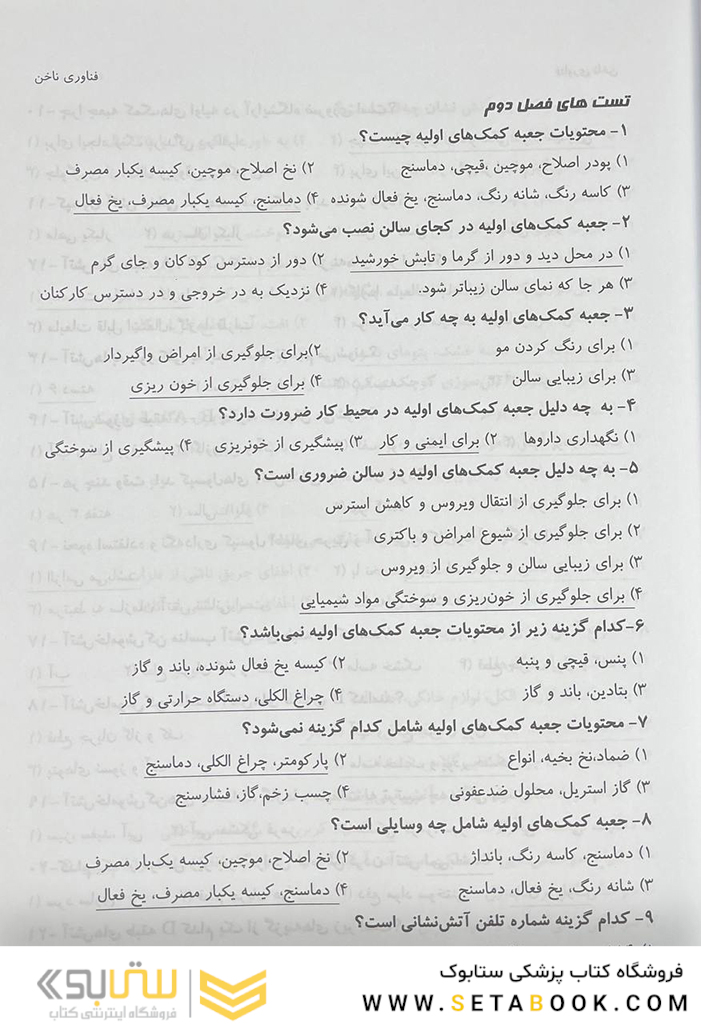 فناوری ناخن
تست های فصل دوم
۱- محتویات جعبه کمک‌های اولیه چیست؟
۱) پودر اصلاح، موچین ،قیچی، دماسنج ۲) نخ اصلاح، موچین، کیسه یکبار مصرف
۳) کاسه رنگ، شانه رنگ، دماسنج، یخ فعال شونده ۴) دماسنج، کیسه یکبار مصرف، یخ فعال
۲- جعبه کمک‌های اولیه در کجای سالن نصب می‌شود؟
۱) در محل دید و دور از گرما و تابش خورشید ۲) دور از دسترس کودکان و جای گرم
۳) هر جا که نمای سالن زیباتر شود. ۴) نزدیک به در خروجی و در دسترس کارکنان
۳- جعبه کمک‌های اولیه به چه کار می‌آید؟
۱) برای رنگ کردن مو ۲)برای جلوگیری از امراض واگیردار
۳) برای زیبایی سالن ۴) برای جلوگیری از خون ریزی
۴- به چه دلیل جعبه کمک‌های اولیه در محیط کار ضرورت دارد؟
۱) نگهداری داروها ۲) برای ایمنی و کار ۳) پیشگیری از خونریزی ۴) پیشگیری از سوختگی
۵- به چه دلیل جعبه کمک‌های اولیه در سالن ضروری است؟
۱) برای جلوگیری از انتقال ویروس و کاهش استرس
۲) برای جلوگیری از شیوع امراض و باکتری
۳) برای زیبایی سالن و جلوگیری از ویروس
۴) برای جلوگیری از خون‌ریزی و سوختگی مواد شیمیایی
۶-کدام گزینه زیر از محتویات جعبه کمک‌های اولیه نمی‌باشد؟
۱) پنس، قیچی و پنبه ۲) کیسه یخ فعال شونده، باند و گاز
۳) بتادین، باند و گاز ۴) چراغ الکلی، دستگاه حرارتی و گاز
۷- محتویات جعبه کمک‌های اولیه شامل کدام گزینه نمی‌شود؟
۱) ضماد،نخ بخیه، انواع ۲) پارکومتر، چراغ الکلی، دماسنج
۳) گاز استریل، محلول ضدعفونی ۴) چسب زخم،گاز، فشارسنج
۸- جعبه کمک‌های اولیه شامل چه وسایلی است؟
۱) دماسنج، کاسه رنگ، بانداژ ۲) نخ اصلاح، موچین، کیسه یک‌بار مصرف
۳) شانه رنگ، یخ فعال، دماسنج ۴) دماسنج، کیسه یکبار مصرف، یخ فعال
۹- کدام گزینه شماره تلفن آتش‌نشانی است؟
فروشگاه کتاب پزشکی ستابوک
WWW.SETABOOK.COM
ستابوک
فروشگاه اینترنتی کتاب